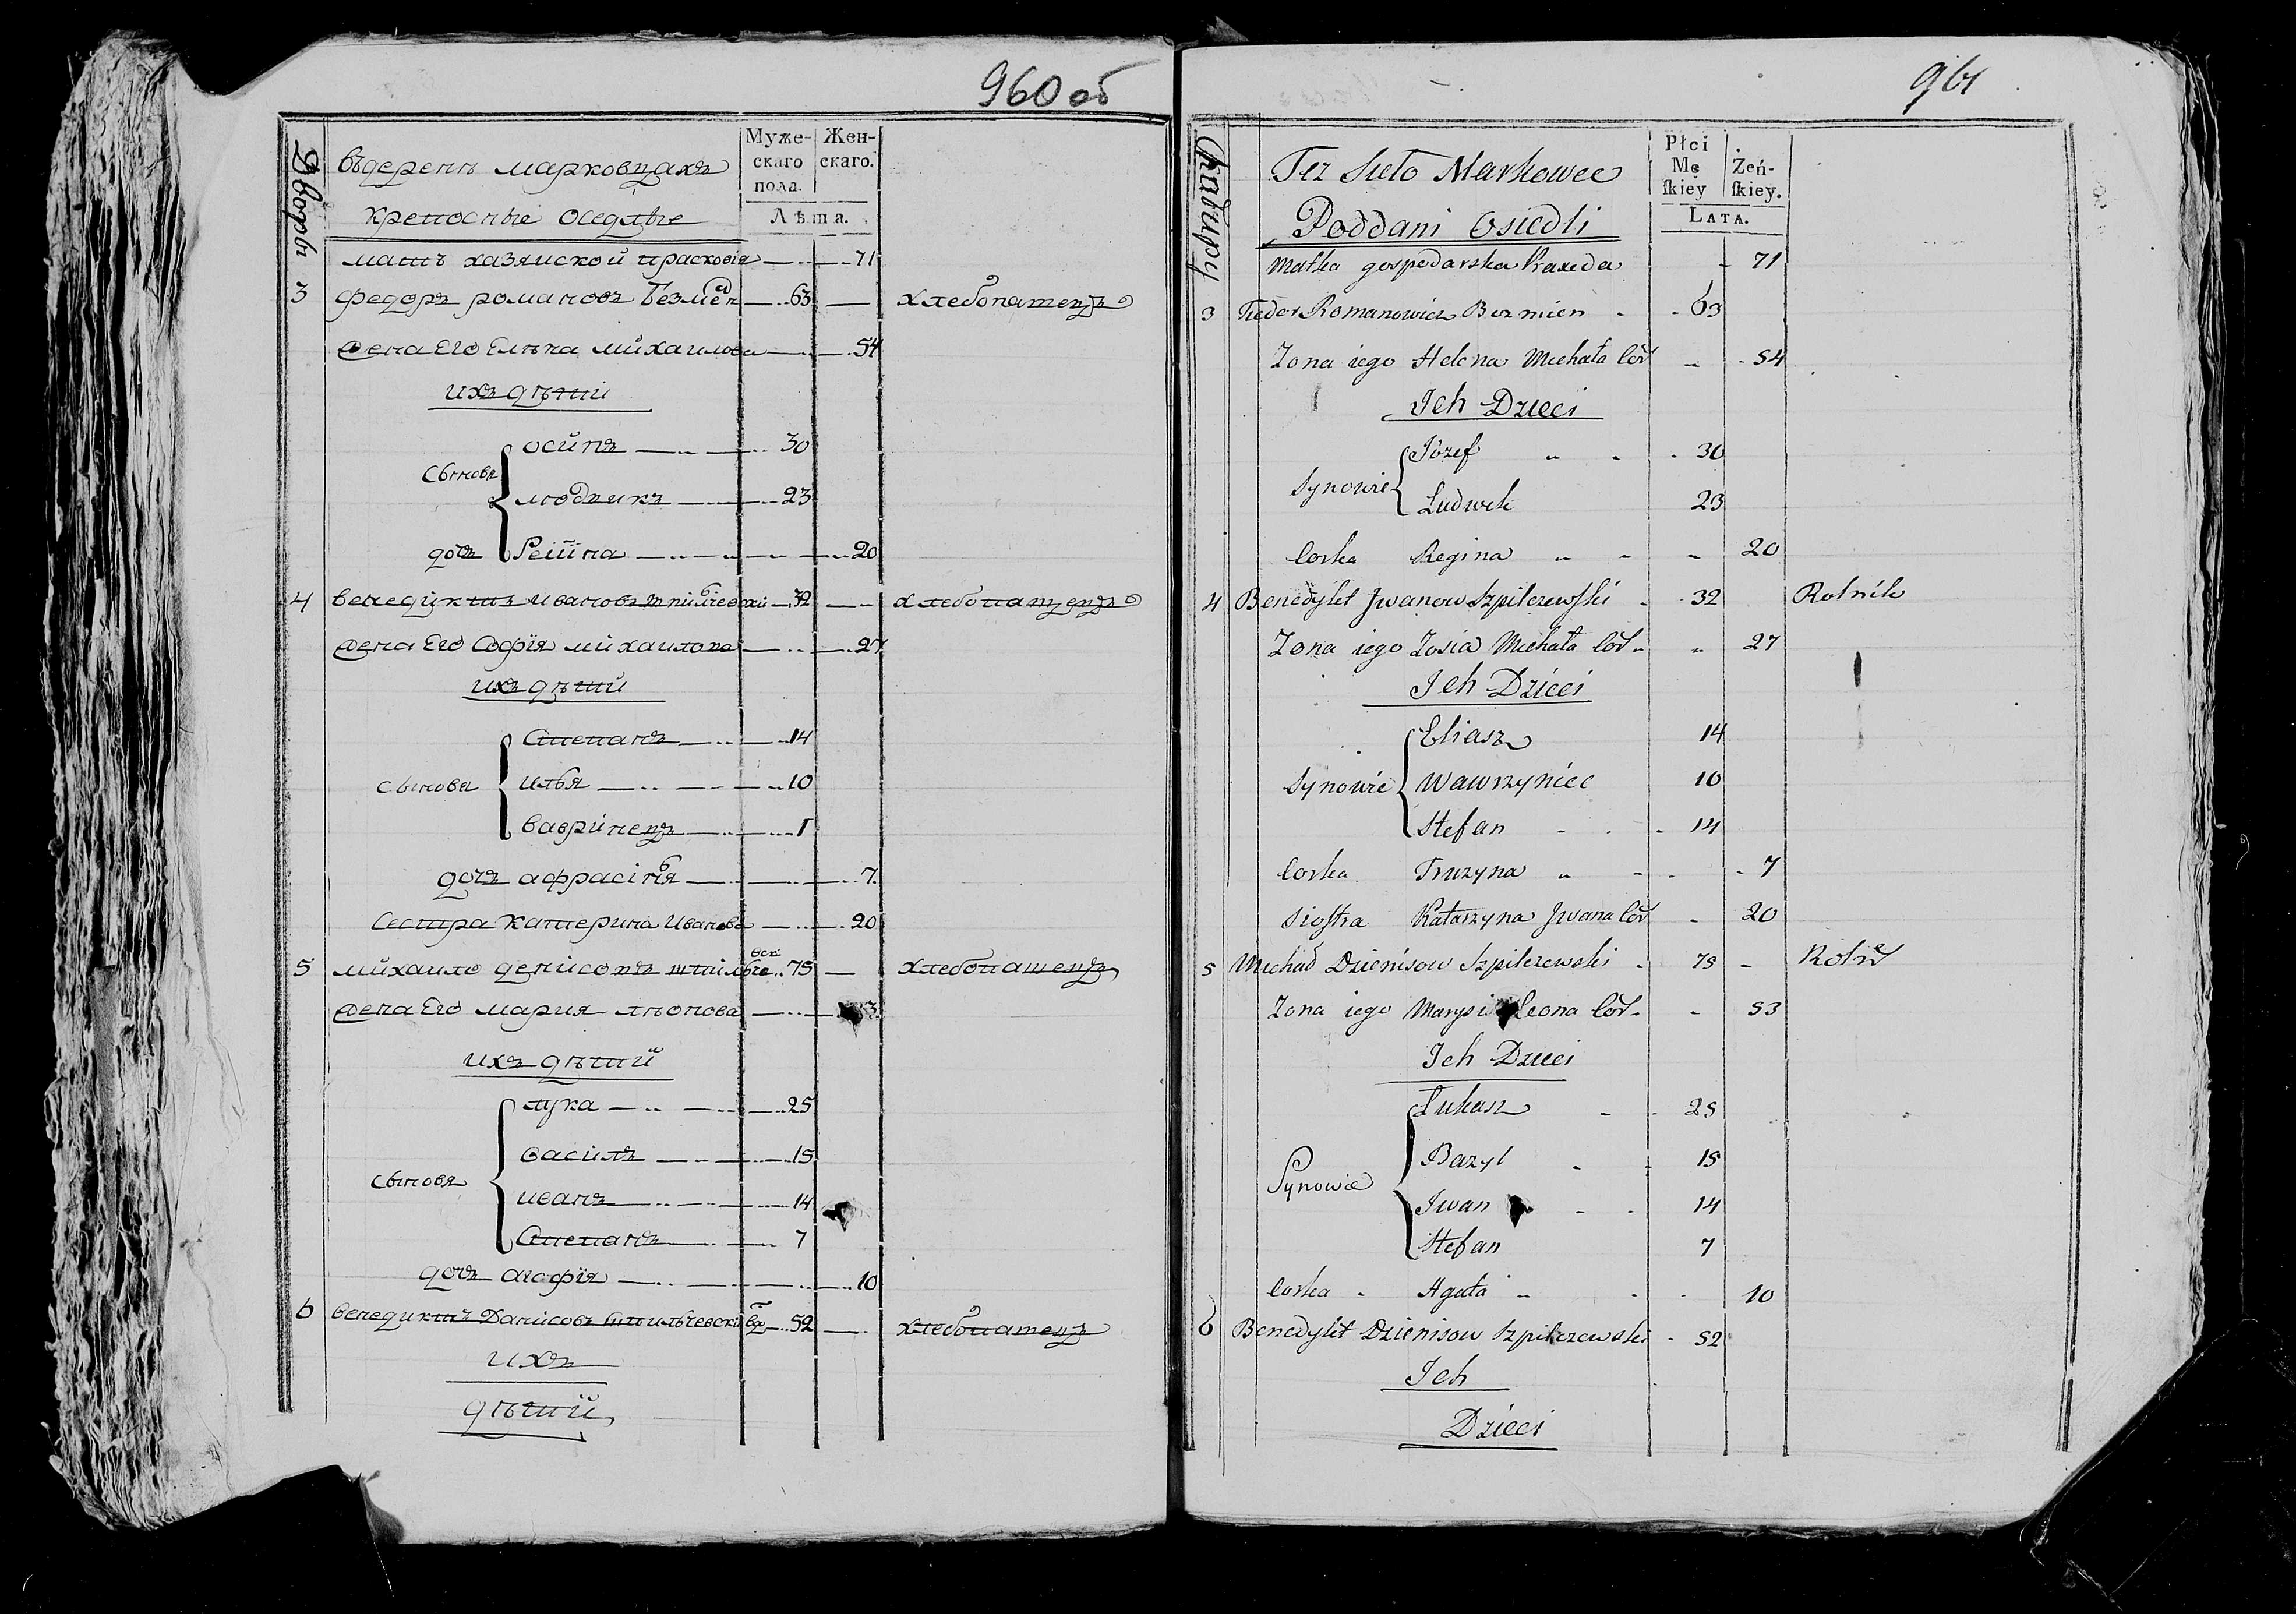 960 об
Дворы
Въ деревнѣ марковцахъ
крепосные оседлые
Муже-
скаго
пола.
Жен-
скаго.
Лѣта.
мать хазяиской прасковiя 71
3 федоръ романовъ Безмен 63 хлебопашецъ
жена Его Елѣна михаилова 54
ихъ дѣтиi
Сынове
осипъ 30
людвикъ 23
дочъ Реiина 20
4 венедиктъ ивановъ шпилчевскии 32 хлебопашецъ
жена Его Софiя михаилова 27
ихъ дѣтий
сыновя
Степанъ 14
илья 10
вавринецъ 1
дочъ афрасiнья 7
Сестра катерина Иванова 20
5 михаило денисовъ шпилче вски 75 хлебопашецъ
жена Его мария лѣонова 3
ихъ дѣтий
сыновя
лука 25
василъ 15
иванъ 14
Степанъ 7
дочъ агофiя 10
6 венедиктъ Данисовъ шпильчевски 52 хлебопашецъ
ихъ
дѣтий
961
Chałupy
Też Sieło Markowce
Poddani Osiedli
Płci
Mę
ſkiey
Żeń-
ſkiey.
Lata.
Matka gospodarska Praxeda 71
3 Fiedor Romanowicz Bezmien 63
Zona iego Helena Michała Cór 54
Ich Dzieci
Synowie
Józef 30
Ludwik 23
Corka Regina 20
4 Benedykt Jwanow Szpilczewſki 32 Rolnik
Zona iego Zosia Michała Cór 27
Ich Dzieci
Synowie
Eliasz 14
Wawrzyniec 10
Stefan 14
Corka Fruzyna 7
Siostra Katarzyna Jwana Cór 20
5 Michał Dzienisow Szpilczewski 75 Roln
Zona iego Marysia Leona Cór 53
Ich Dzieci
Synowie
Łukasz 25
Bazyl 15
Iwan 14
Stefan 7
Corka Agata 10
6 Benedykt Dzienisow Szpilczewski 52
Ich
Dzieci